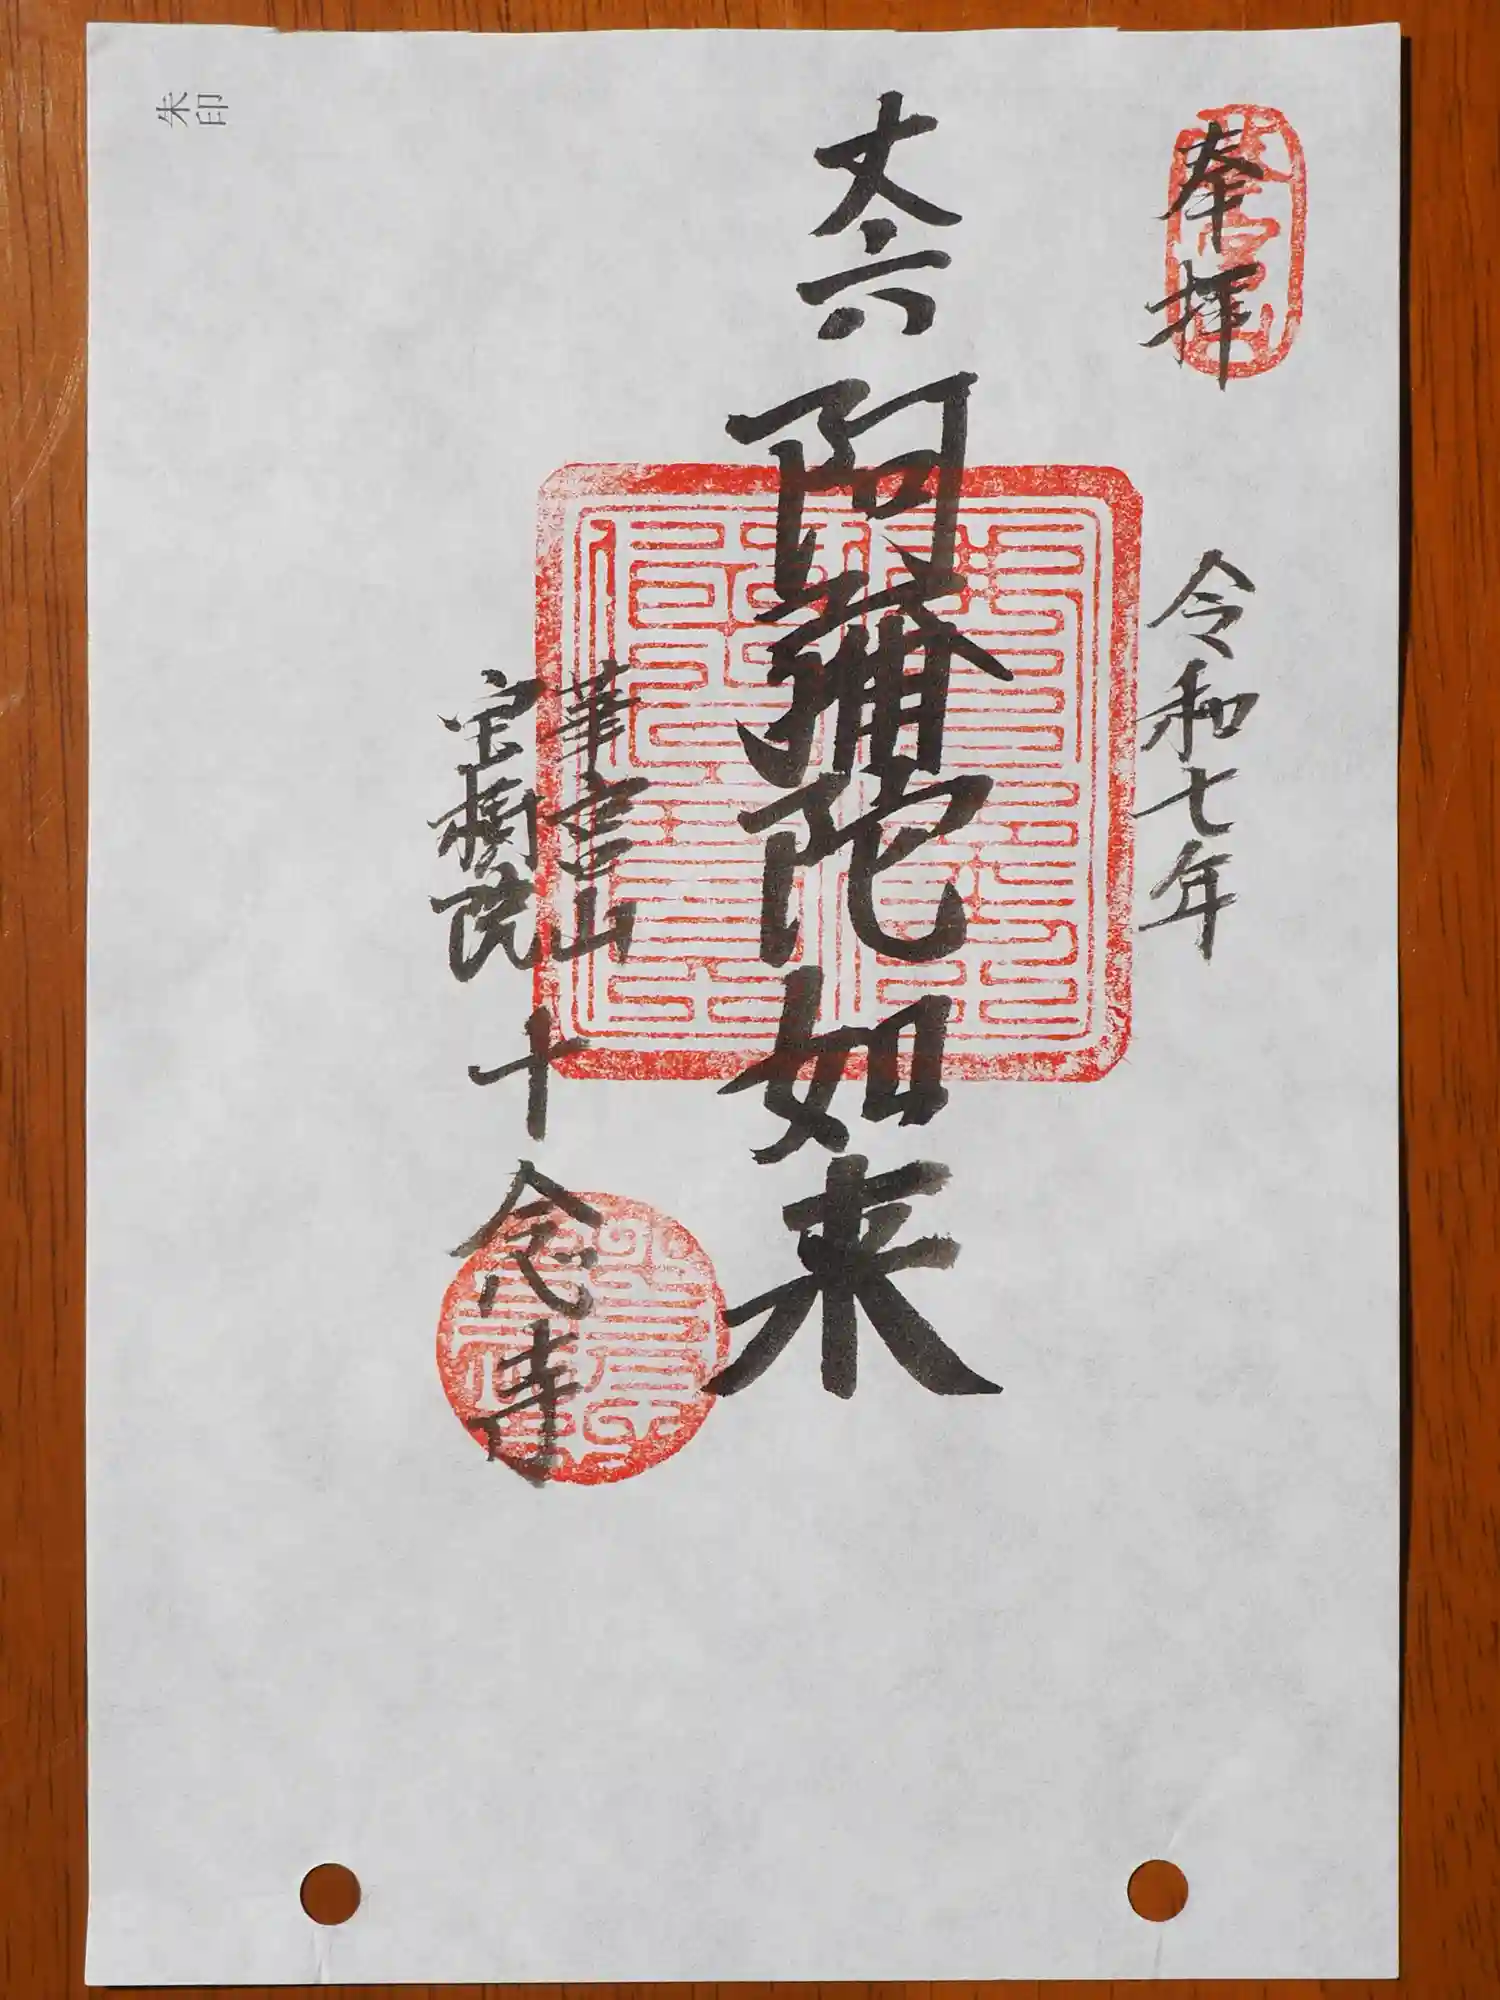 華宮山
奉拝
令和七年
丈六阿彌陀如来
華宮山
宝樹院
十念寺
朱印